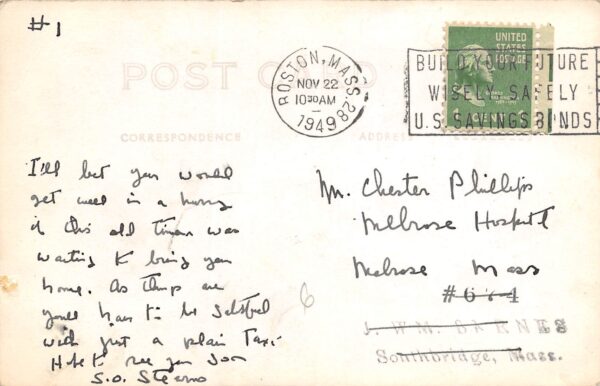 #1
POST CARD
BOSTON, MASS. 28
NOV 22
10 30 AM
1949
BUILD YOUR FUTURE
WISELY SAFELY
U.S. SAVINGS BONDS
UNITED
STATES
POSTAGE
CORRESPONDENCE
ADDRESS
I'll bet you would
get well in a hurry
if this old timer was
waiting to bring you
home. As things are
you'll have to be satisfied
with just a plain Taxi.
Hope to see you soon
S.O.
Mr. Chester Phillips
Melrose Hospital
Melrose Mass
#674
J. WM. BARNES
Southbridge, Mass.
6